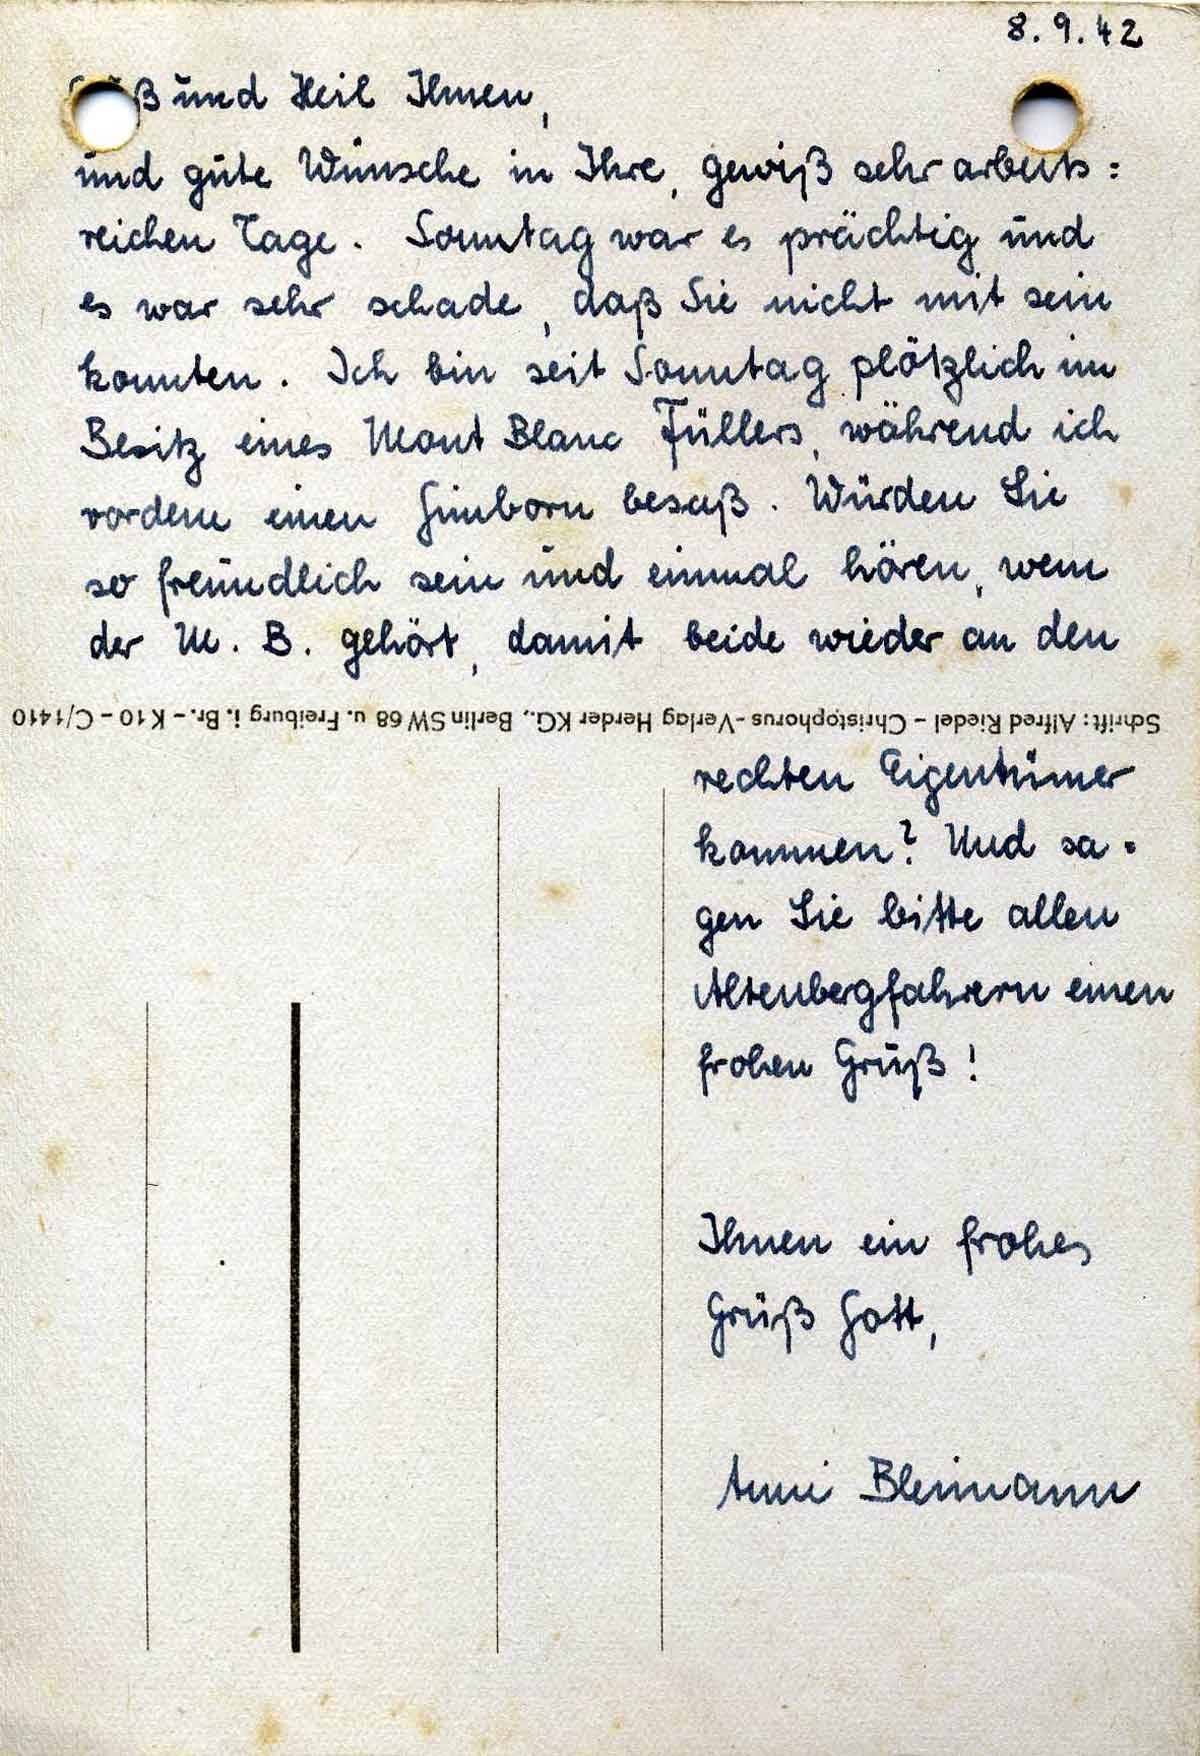 8.9.42
Gruß und Heil Ihnen,
und gute Wünsche in Ihre, gewiß sehr arbeits=
reichen Tage. Sonntag war es prächtig und
es war sehr schade, daß Sie nicht mit sein
konnten. Ich bin seit Sonntag plötzlich im
Besitz eines Mont Blanc Füllers, während ich
vordem einen Gimborn besaß. Würden Sie
so freundlich sein und einmal hören, wem
der M. B. gehört, damit beide wieder an den
Schrift: Alfred Riedel – Christophorus-Verlag Herder KG., Berlin SW 68 u. Freiburg i. Br. – K 10 – C/1410
rechten Eigentümer
kommen? Und sa-
gen Sie bitte allen
Altenbergfahrern einen
frohen Gruß!
Ihnen ein frohes
Grüß Gott,
Anni Bleimann